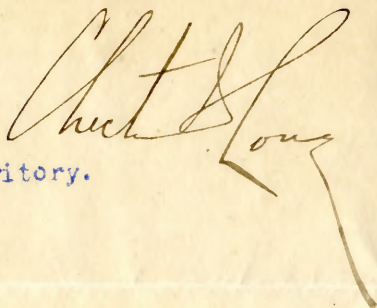 Chester I Long
ritory.